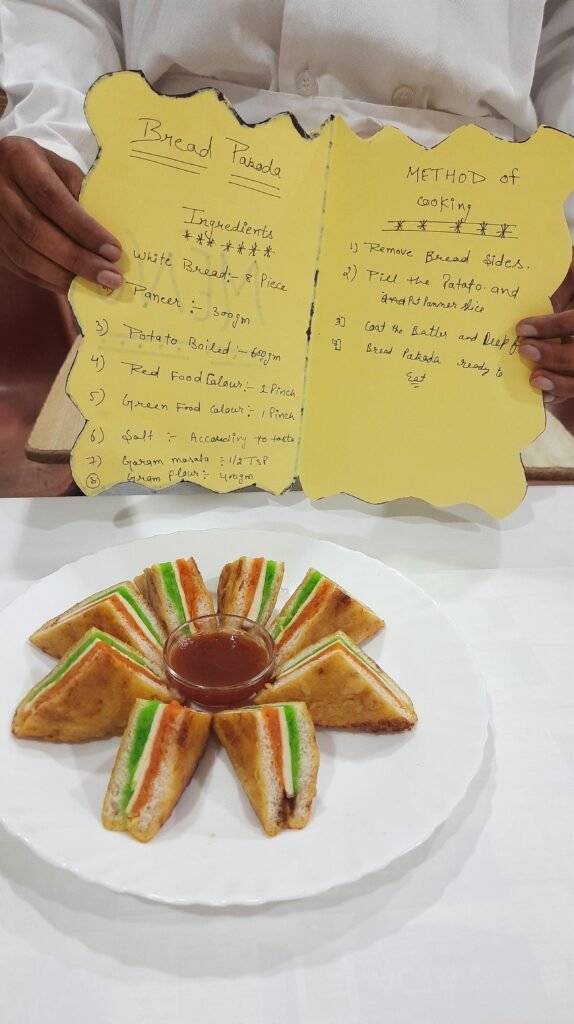 Bread Pakoda
Ingredients
White Bread:- 8 Piece
Paneer :- 300gm
3) Potato Boiled :- 600gm
4) Red Food Colour:- 1 Pinch
5) Green Food Colour:- 1 Pinch
6) Salt :- According to taste
7) Garam masala :- 1/2 TsP
8 Gram flour:- 400gm
METHOD of
Cooking
1) Remove Bread Sides.
2) Fill the Patato and
Put Panner slice
3] Coat the Batter and Deep
4] Bread Pakada ready to
Eat